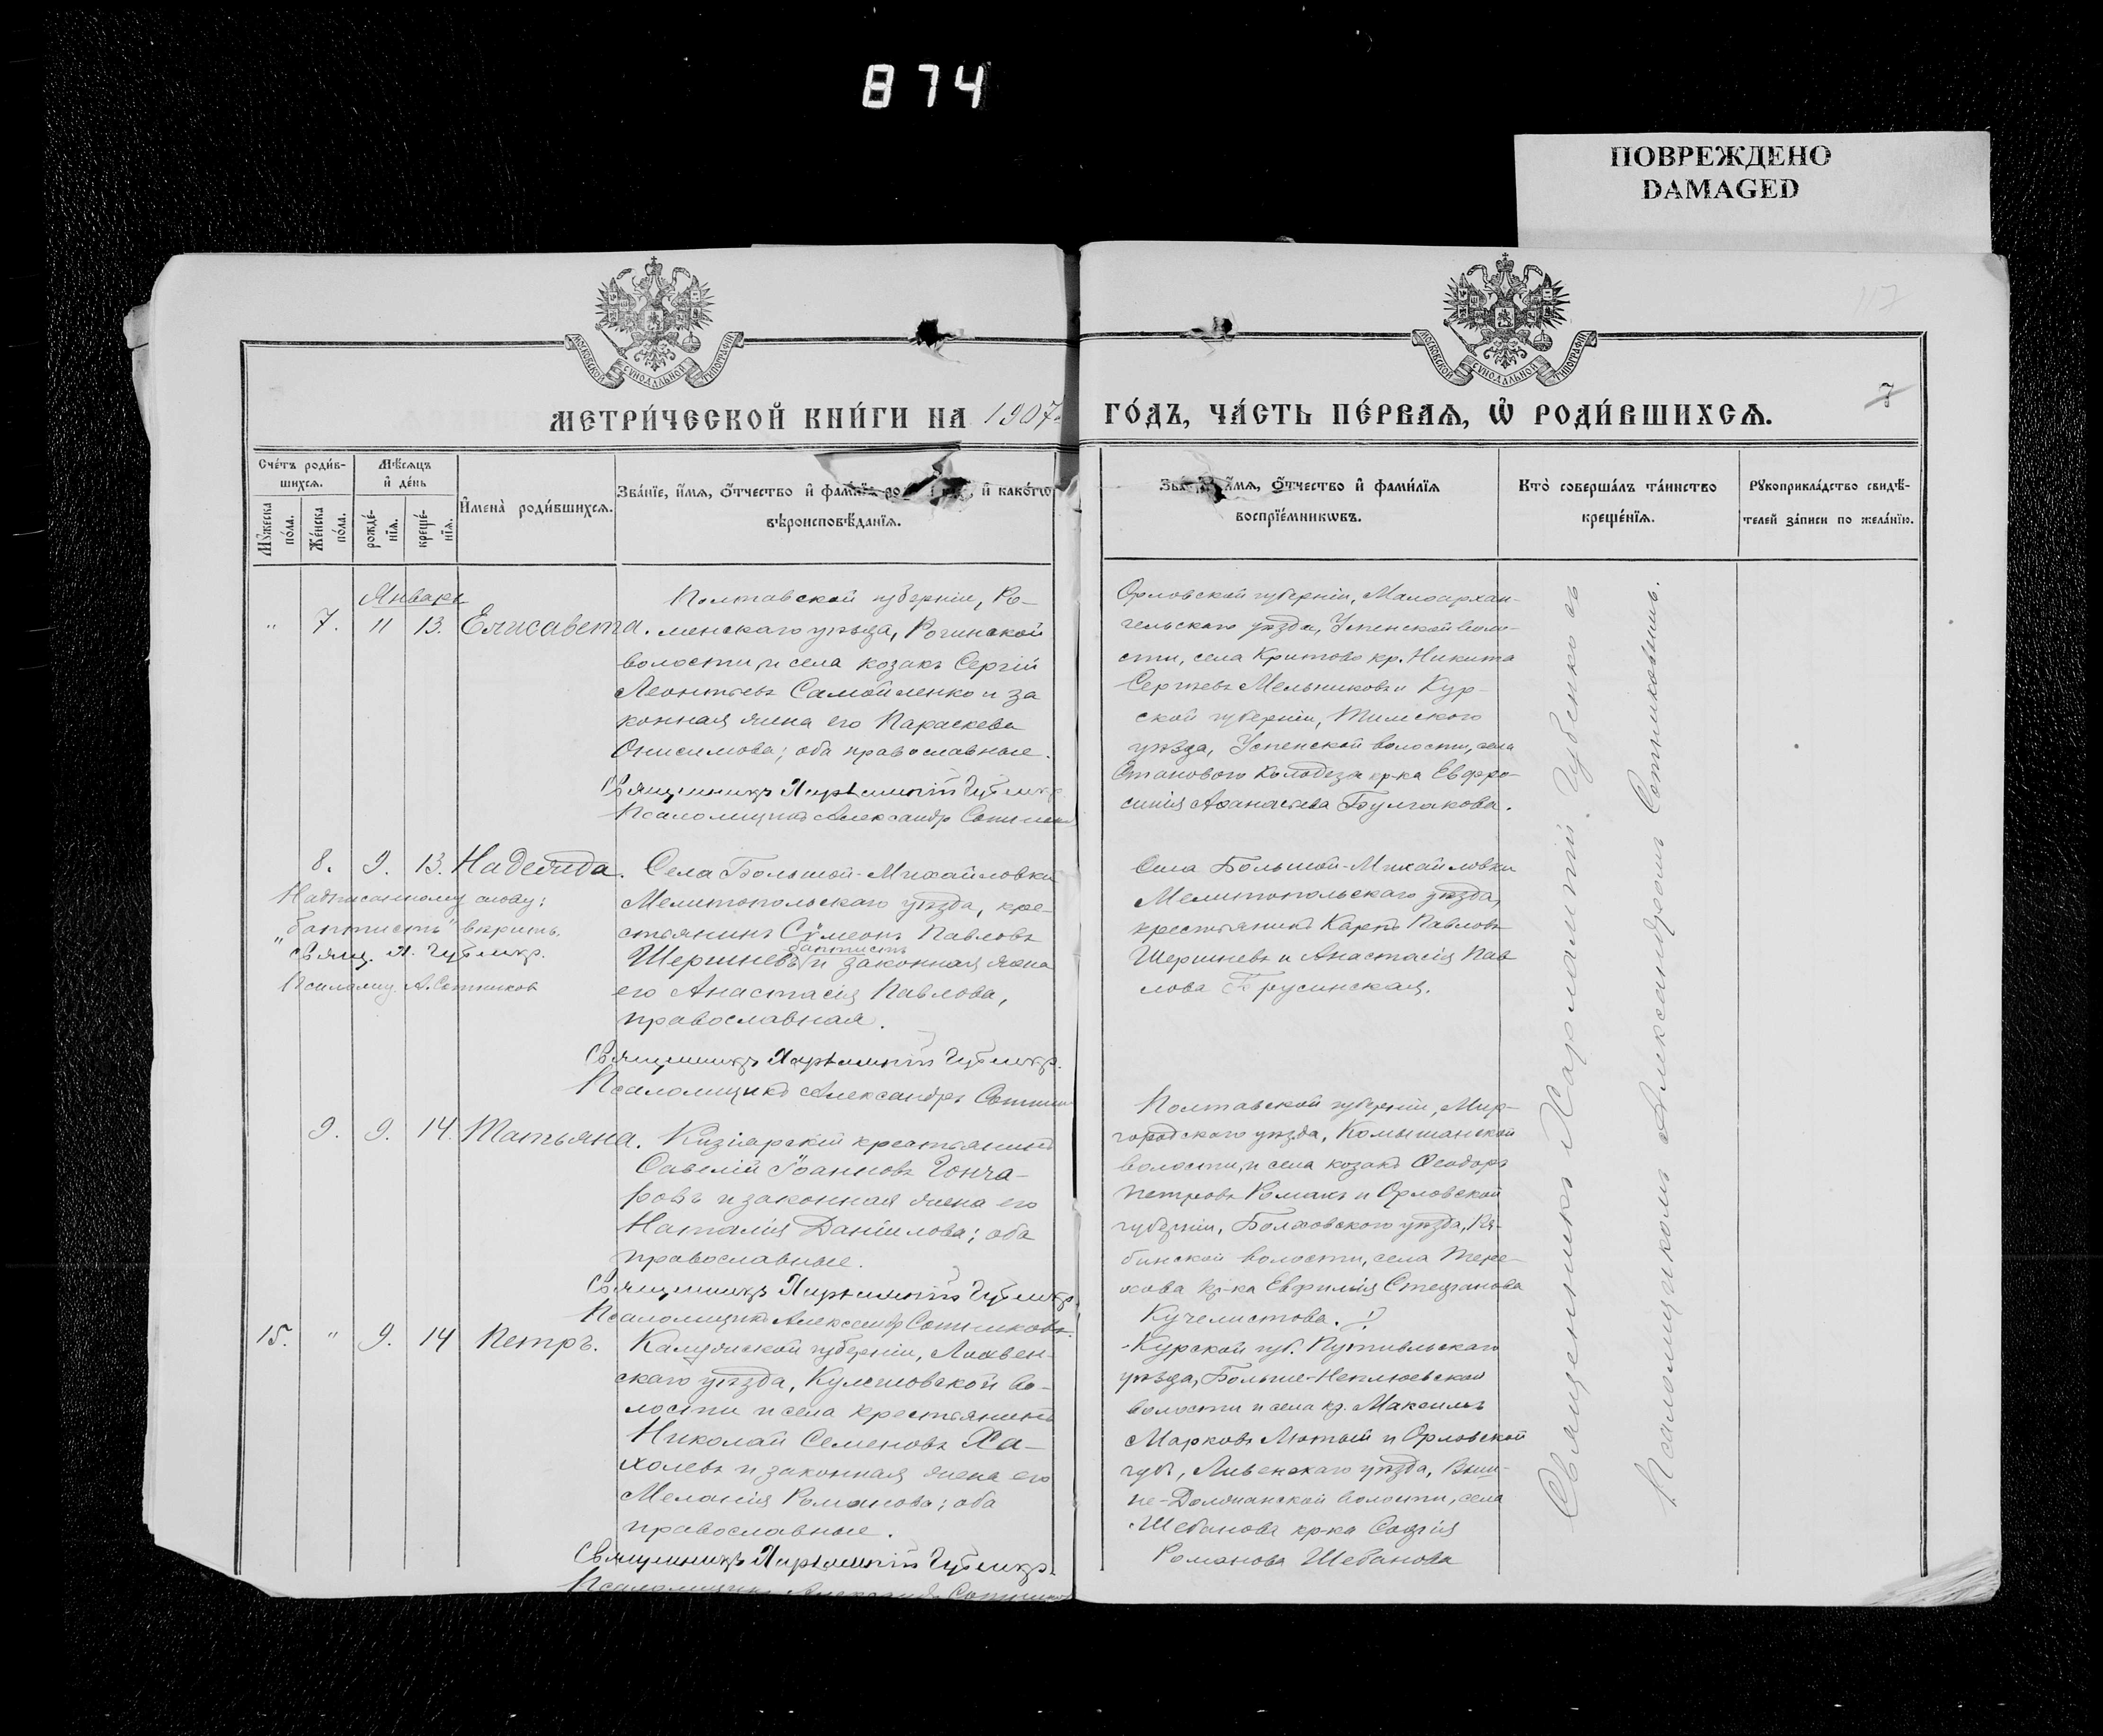 874
ПОВРЕЖДЕНО
DAMAGED
117
7
МОСКОВСКОЙ СѴНОДАЛЬНОЙ ТИПОГРАФІИ
МОСКОВСКОЙ СѴНОДАЛЬНОЙ ТИПОГРАФІИ
МЕТРИ́ЧЕСКОЙ КНИ́ГИ НА 1907
ГО́ДЪ, ЧА́СТЬ ПЕ́РВАѦ, Ѡ҆ РОДИ́ВШИХСѦ.
Сче́тъ роди́в-
шихсѧ.
Мѣ́сѧцъ
и҆ де́нь
Мꙋ́жеска
по́ла.
Же́нска
по́ла.
рожде́-
нїѧ.
креще́-
нїѧ.
И҆мена̀ роди́вшихсѧ.
Зва́нїе, и҆́мѧ, ѻ҆́тчество и҆ фами́лїѧ и҆ како́гѡ
вѣроисповѣ́данїѧ.
и҆́мѧ, ѻ҆́тчество и҆ фами́лїѧ
воспрїе́мникѡвъ.
Кто̀ соверша́лъ та́инство
креще́нїѧ.
Рꙋкоприкла́дство свидѣ́-
телей за́писи по жела́нїю.
Январь
" 7. 11 13. Елисавета.
Полтавской губерніи, Ро-
менскаго уѣзда, Рогинской
волости, и села козакъ Сергій
Леонтьевъ Самойленко и за
конная жена его Параскева
Онисимова; оба православные.
Священникъ Харлампій Губенко
Псаломщикъ Александръ Сотников
Орловской губерніи, Малоархан-
гельскаго уѣзда, Успенской воло-
сти, села Критово кр. Никита
Сергѣевъ Мельниковъ и Кур-
ской губерніи, Тимскаго
уѣзда, Успенской волости, села
Станового Колодезя кр-ка Евфро-
синія Аѳанасьева Булгакова.
8. 9. 13. Надежда.
Надписанному слову:
"баптистъ" вѣрить.
Свящ. Х. Губенко.
Псаломщ. А. Сотников
Села Большой-Михайловки
Мелитопольскаго уѣзда, кре-
стьянинъ Сѵмеонъ Павловъ
баптистъ
Шершневъ и законная жена
его Анастасія Павлова,
православная.
Священникъ Харлампій Губенко.
Псаломщикъ Александръ Сотник
Села Большой-Михайловки
Мелитопольскаго уѣзда,
крестьянинъ Карпъ Павловъ
Шершневъ и Анастасія Пав
лова Грусинская.
9. 9. 14. Татьяна.
Кизіярскій крестьянинъ
Савелій Іоанновъ Гонча-
ровъ и законная жена его
Наталія Даніилова; оба
православные.
Священникъ Харлампій Губенко.
Псаломщикъ Александр Сотниковъ.
Полтавской губерніи, Мир-
городскаго уѣзда, Комышанской
волости, и села козакъ Ѳеодоръ
Петровъ Ромакъ и Орловской
губерніи, Болховского уѣзда, Кы-
бинской волости, села Тере-
хова кр-ка Евфимія Стефанова
Кучелистова.
15. " 9. 14 Петръ.
Калужской губерніи, Лихвен-
скаго уѣзда, Кулешовской во-
лости и села крестьянинъ
Николай Семеновъ Ха-
холевъ и законная жена его
Меланія Романова; оба
православные.
Священникъ Харлампій Губенко.
Псаломщикъ Александръ Сотников
Курской губ. Путивльскаго
уѣзда, Больше-Неплюевской
волости и села кр. Максимъ
Марковъ Лютый и Орловской
губ., Ливенскаго уѣзда, Выш-
не-Должанской волости, села
Шебанова кр-ка Софія
Романова Шебанова
Священникъ Харлампій Губенко съ
Псаломщикомъ Александромъ Сотниковымъ.